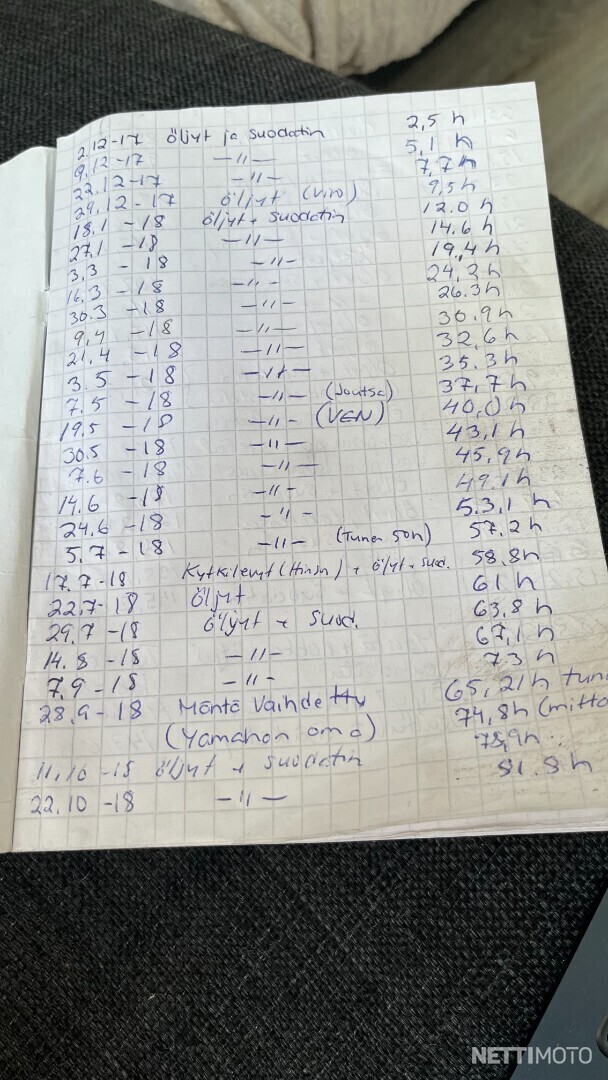 2.12-17 öljyt ja suodatin 2,5 h
9.12-17 -"- 5,1 h
22.12-17 -"- 7,7 h
29.12-17 öljyt (Viro) 9,5 h
18.1 -18 öljyt + suodatin 12.0 h
27.1 -18 -"- 14.6 h
3.3 - 18 -"- 19,4 h
16.3 -18 -"- 24,2 h
30.3 -18 -"- 26.3 h
9.4 -18 -"- 30.9 h
21.4 -18 -"- 32,6 h
3.5 -18 -"- 35.3 h
7.5 -18 -"- (Joutsa) 37,7 h
19.5 -18 -"- (VEN) 40,0 h
30.5 -18 -"- 43,1 h
7.6 -18 -"- 45,9 h
14.6 -18 -"- 49.1 h
24.6 -18 -"- 53,1 h
5.7 -18 -"- (Tuner 50h) 57.2 h
17.7-18 Kytkilevyt (Hinson) + öljyt + suod. 58,8 h
22.7-18 öljyt 61 h
29.7-18 öljyt + suod. 63,8 h
14.8 -18 -"- 67,1 h
7.9 -18 -"- 73 h
28.9 -18 Mäntä vaihdettu 65,21h tun
(Yamahan oma) 74,8h (mitta
11.10 -18 öljyt + suodatin
22.10 -18 -"- 81.8 h